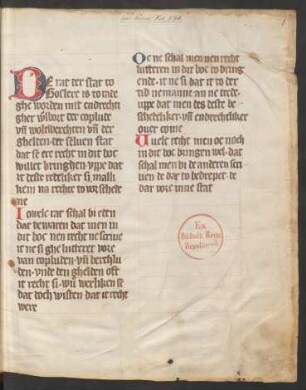 De rat der stat to
Goslere is to rade
ghe worden mit endrechti
gher volbort der coplude
vn woltwerchten vn der
ghelden der seluen stat
dat se ere recht in dit boc
willet bringhen vppe dat
it deste redeliker si malli
kem na rechte to vorschede
ne
Iowelc rat schal bi eden
dat be waren dat men in
dit boc nen recht ne scriue
it ne si ghe lutteret vore
van copluden vn berchlu
den vnde den ghelden oft
it recht si wu werliken se
dat doch wisten dat it recht
were
Oc ne schal men nen recht
lutteren in dit boc to bring
ende it ne si dat it to der
tid nemanne an ne trede
vppe dat men des deste be
schedeliker vn endrechtliker
ouer come
Welc recht men oc noch
in dit boc bringen wel dat
schal men bi de anderen scri
uen de dar to bedreper de
dar vore inne stat
Ex
Biblioth. Regia
Berolinensi